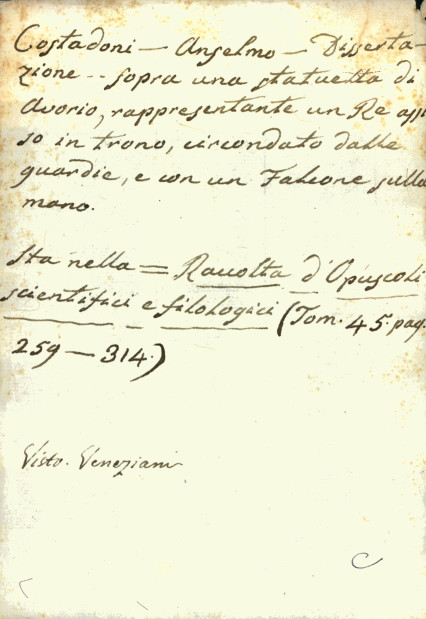 Costadoni — Anselmo — Disserta-
zione -- sopra una statuetta di
Avorio, rappresentante un Re assi
so in trono, circondato dalle
guardie, e con un Falcone sulla
mano.
Sta nella = Raccolta d'Opuscoli
scientifici e filologici (Tom. 45. pag.
259 — 314.)
Visto. Veneziani
C